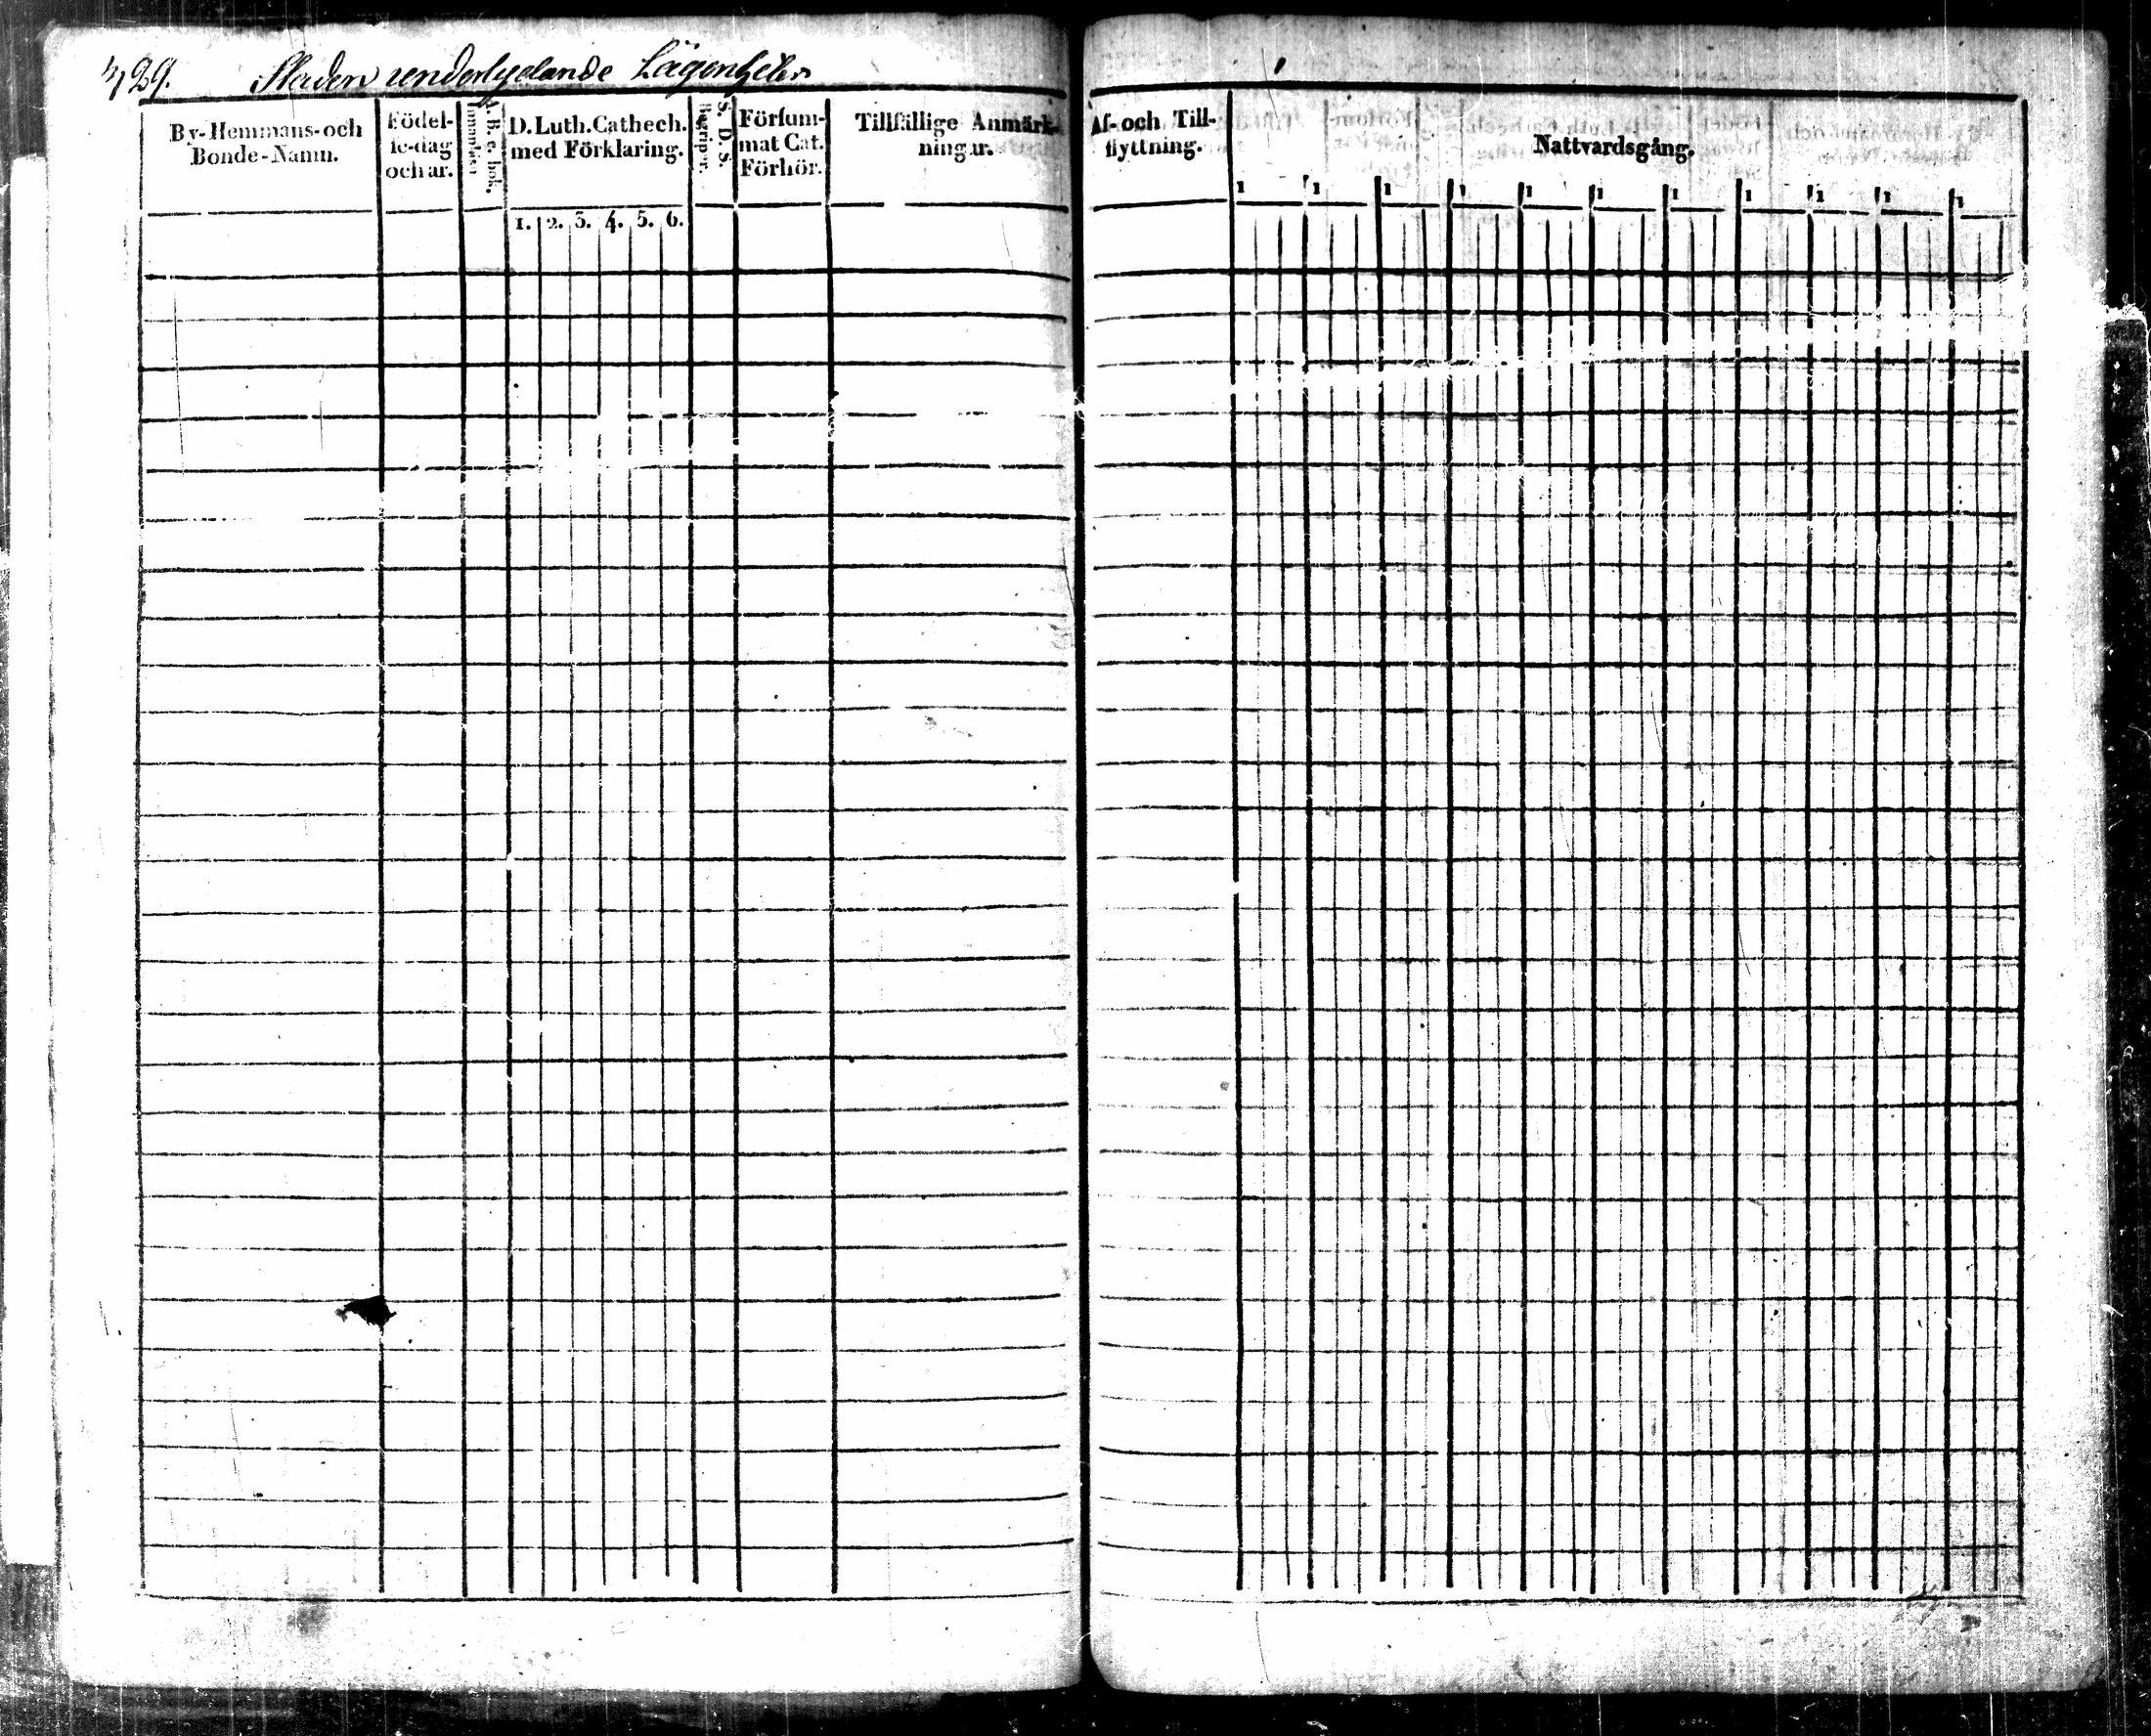 429. Staden underlydande Lägenheter
By-Hemmans-och Bonde-Namn.
Födel-
se-dag
och år.
A.B.c.bok.
Innanläsn.
D. Luth. Cathech.
med Förklaring.
1. 2. 3. 4. 5. 6.
S. D. S.
Begriper.
Försum-
mat Cat.
Förhör.
Tillfällige Anmärk-
ningar.
Af- och Till-
flyttning.
Nattvardsgång.
1 1 1 1 1 1 1 1 1 1 1